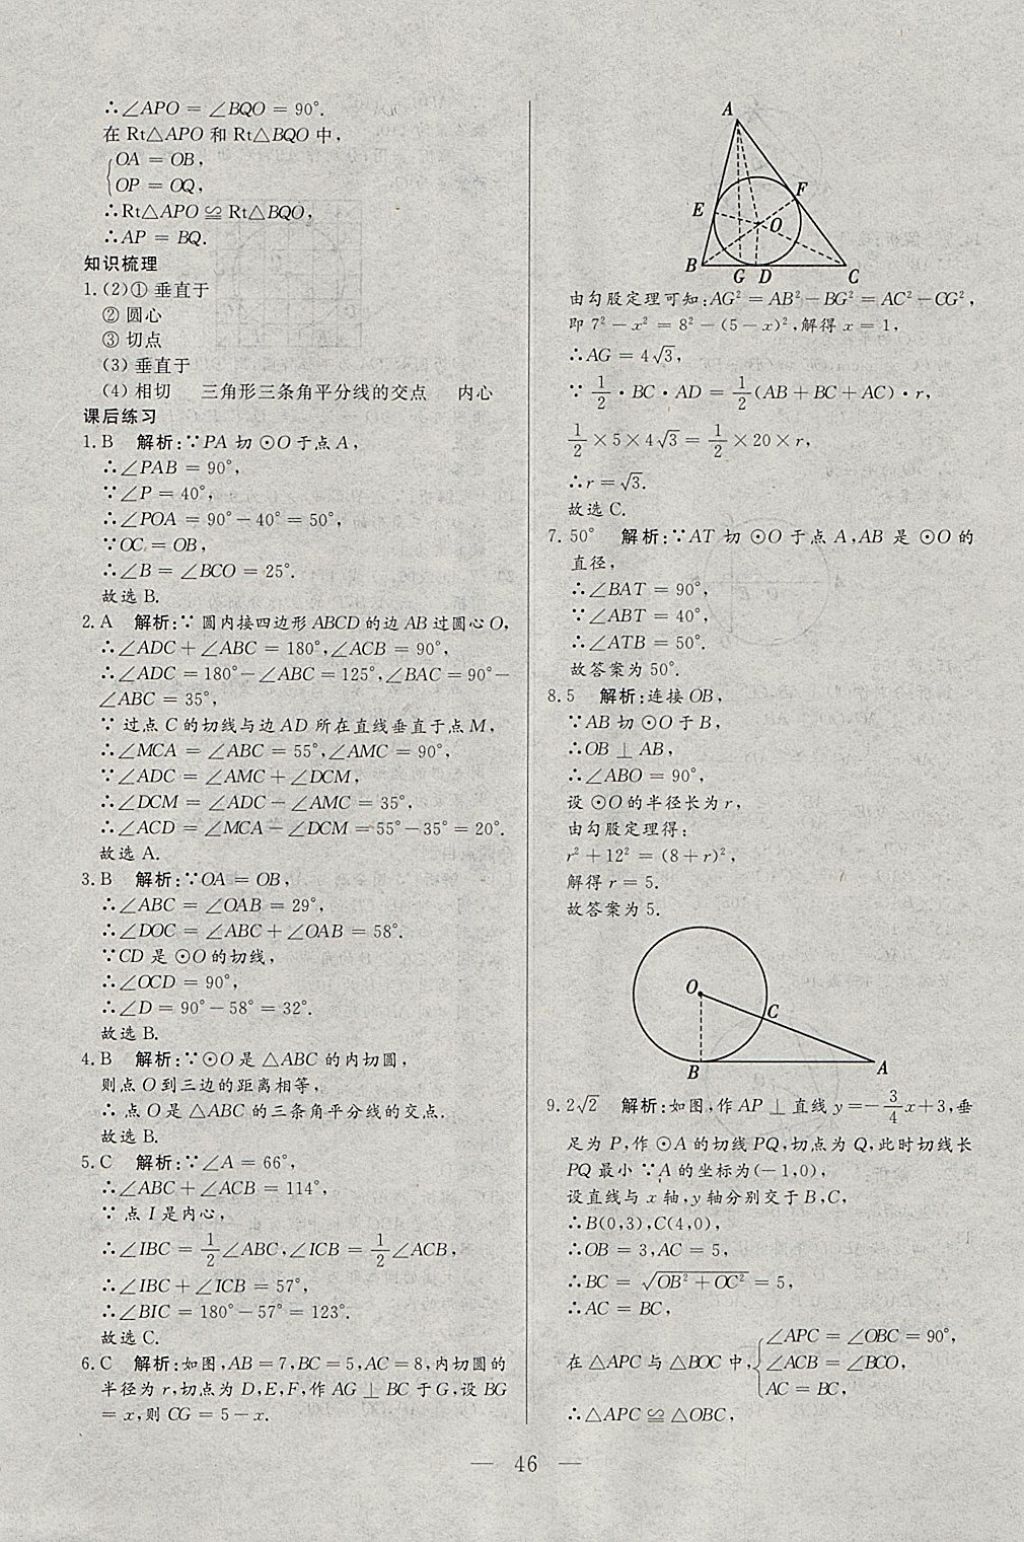 ∴∠APO=∠BQO=90°.
在 Rt△APO 和 Rt△BQO 中,
OA=OB,
OP=OQ,
∴Rt△APO≌Rt△BQO,
∴AP=BQ.
知识梳理
1.(2)① 垂直于
② 圆心
③ 切点
(3) 垂直于
(4) 相切 三角形三条角平分线的交点 内心
课后练习
1. B 解析:∵PA 切 ⊙O 于点 A,
∴∠PAB=90°,
∵∠P=40°,
∴∠POA=90°-40°=50°,
∵OC=OB,
∴∠B=∠BCO=25°.
故选 B.
2. A 解析:∵ 圆内接四边形 ABCD 的边 AB 过圆心 O,
∴∠ADC+∠ABC=180°,∠ACB=90°,
∴∠ADC=180°-∠ABC=125°,∠BAC=90°-
∠ABC=35°,
∵ 过点 C 的切线与边 AD 所在直线垂直于点 M,
∴∠MCA=∠ABC=55°,∠AMC=90°,
∵∠ADC=∠AMC+∠DCM,
∴∠DCM=∠ADC-∠AMC=35°,
∴∠ACD=∠MCA-∠DCM=55°-35°=20°.
故选 A.
3. B 解析:∵OA=OB,
∴∠ABC=∠OAB=29°,
∴∠DOC=∠ABC+∠OAB=58°.
∵CD 是 ⊙O 的切线,
∴∠OCD=90°,
∴∠D=90°-58°=32°.
故选 B.
4. B 解析:∵⊙O 是 △ABC 的内切圆,
则点 O 到三边的距离相等,
∴ 点 O 是 △ABC 的三条角平分线的交点.
故选 B.
5. C 解析:∵∠A=66°,
∴∠ABC+∠ACB=114°,
∵ 点 I 是内心,
∴∠IBC=1/2∠ABC,∠ICB=1/2∠ACB,
∴∠IBC+∠ICB=57°,
∴∠BIC=180°-57°=123°.
故选 C.
6. C 解析:如图,AB=7,BC=5,AC=8,内切圆的
半径为 r,切点为 D,E,F,作 AG⊥BC 于 G,设 BG
=x,则 CG=5-x.
A
F
E
O
B
G D
C
由勾股定理可知:AG²=AB²-BG²=AC²-CG²,
即 7²-x²=8²-(5-x)²,解得 x=1,
∴AG=4√3,
∵ 1/2·BC·AD=1/2(AB+BC+AC)·r,
1/2×5×4√3=1/2×20×r,
∴r=√3.
故选 C.
7. 50° 解析:∵AT 切 ⊙O 于点 A,AB 是 ⊙O 的
直径,
∴∠BAT=90°,
∵∠ABT=40°,
∴∠ATB=50°.
故答案为 50°.
8. 5 解析:连接 OB,
∵AB 切 ⊙O 于 B,
∴OB⊥AB,
∴∠ABO=90°,
设 ⊙O 的半径长为 r,
由勾股定理得:
r²+12²=(8+r)²,
解得 r=5.
故答案为 5.
O
C
B
A
9. 2√2 解析:如图,作 AP⊥直线 y=-3/4x+3,垂
足为 P,作 ⊙A 的切线 PQ,切点为 Q,此时切线长
PQ 最小 ∵A 的坐标为(-1,0),
设直线与 x 轴,y 轴分别交于 B,C,
∴B(0,3),C(4,0),
∴OB=3,AC=5,
∴BC=√(OB²+OC²)=5,
∴AC=BC,
∠APC=∠OBC=90°,
在 △APC 与 △BOC 中, ∠ACB=∠BCO,
AC=BC,
∴△APC≌△OBC,
— 46 —